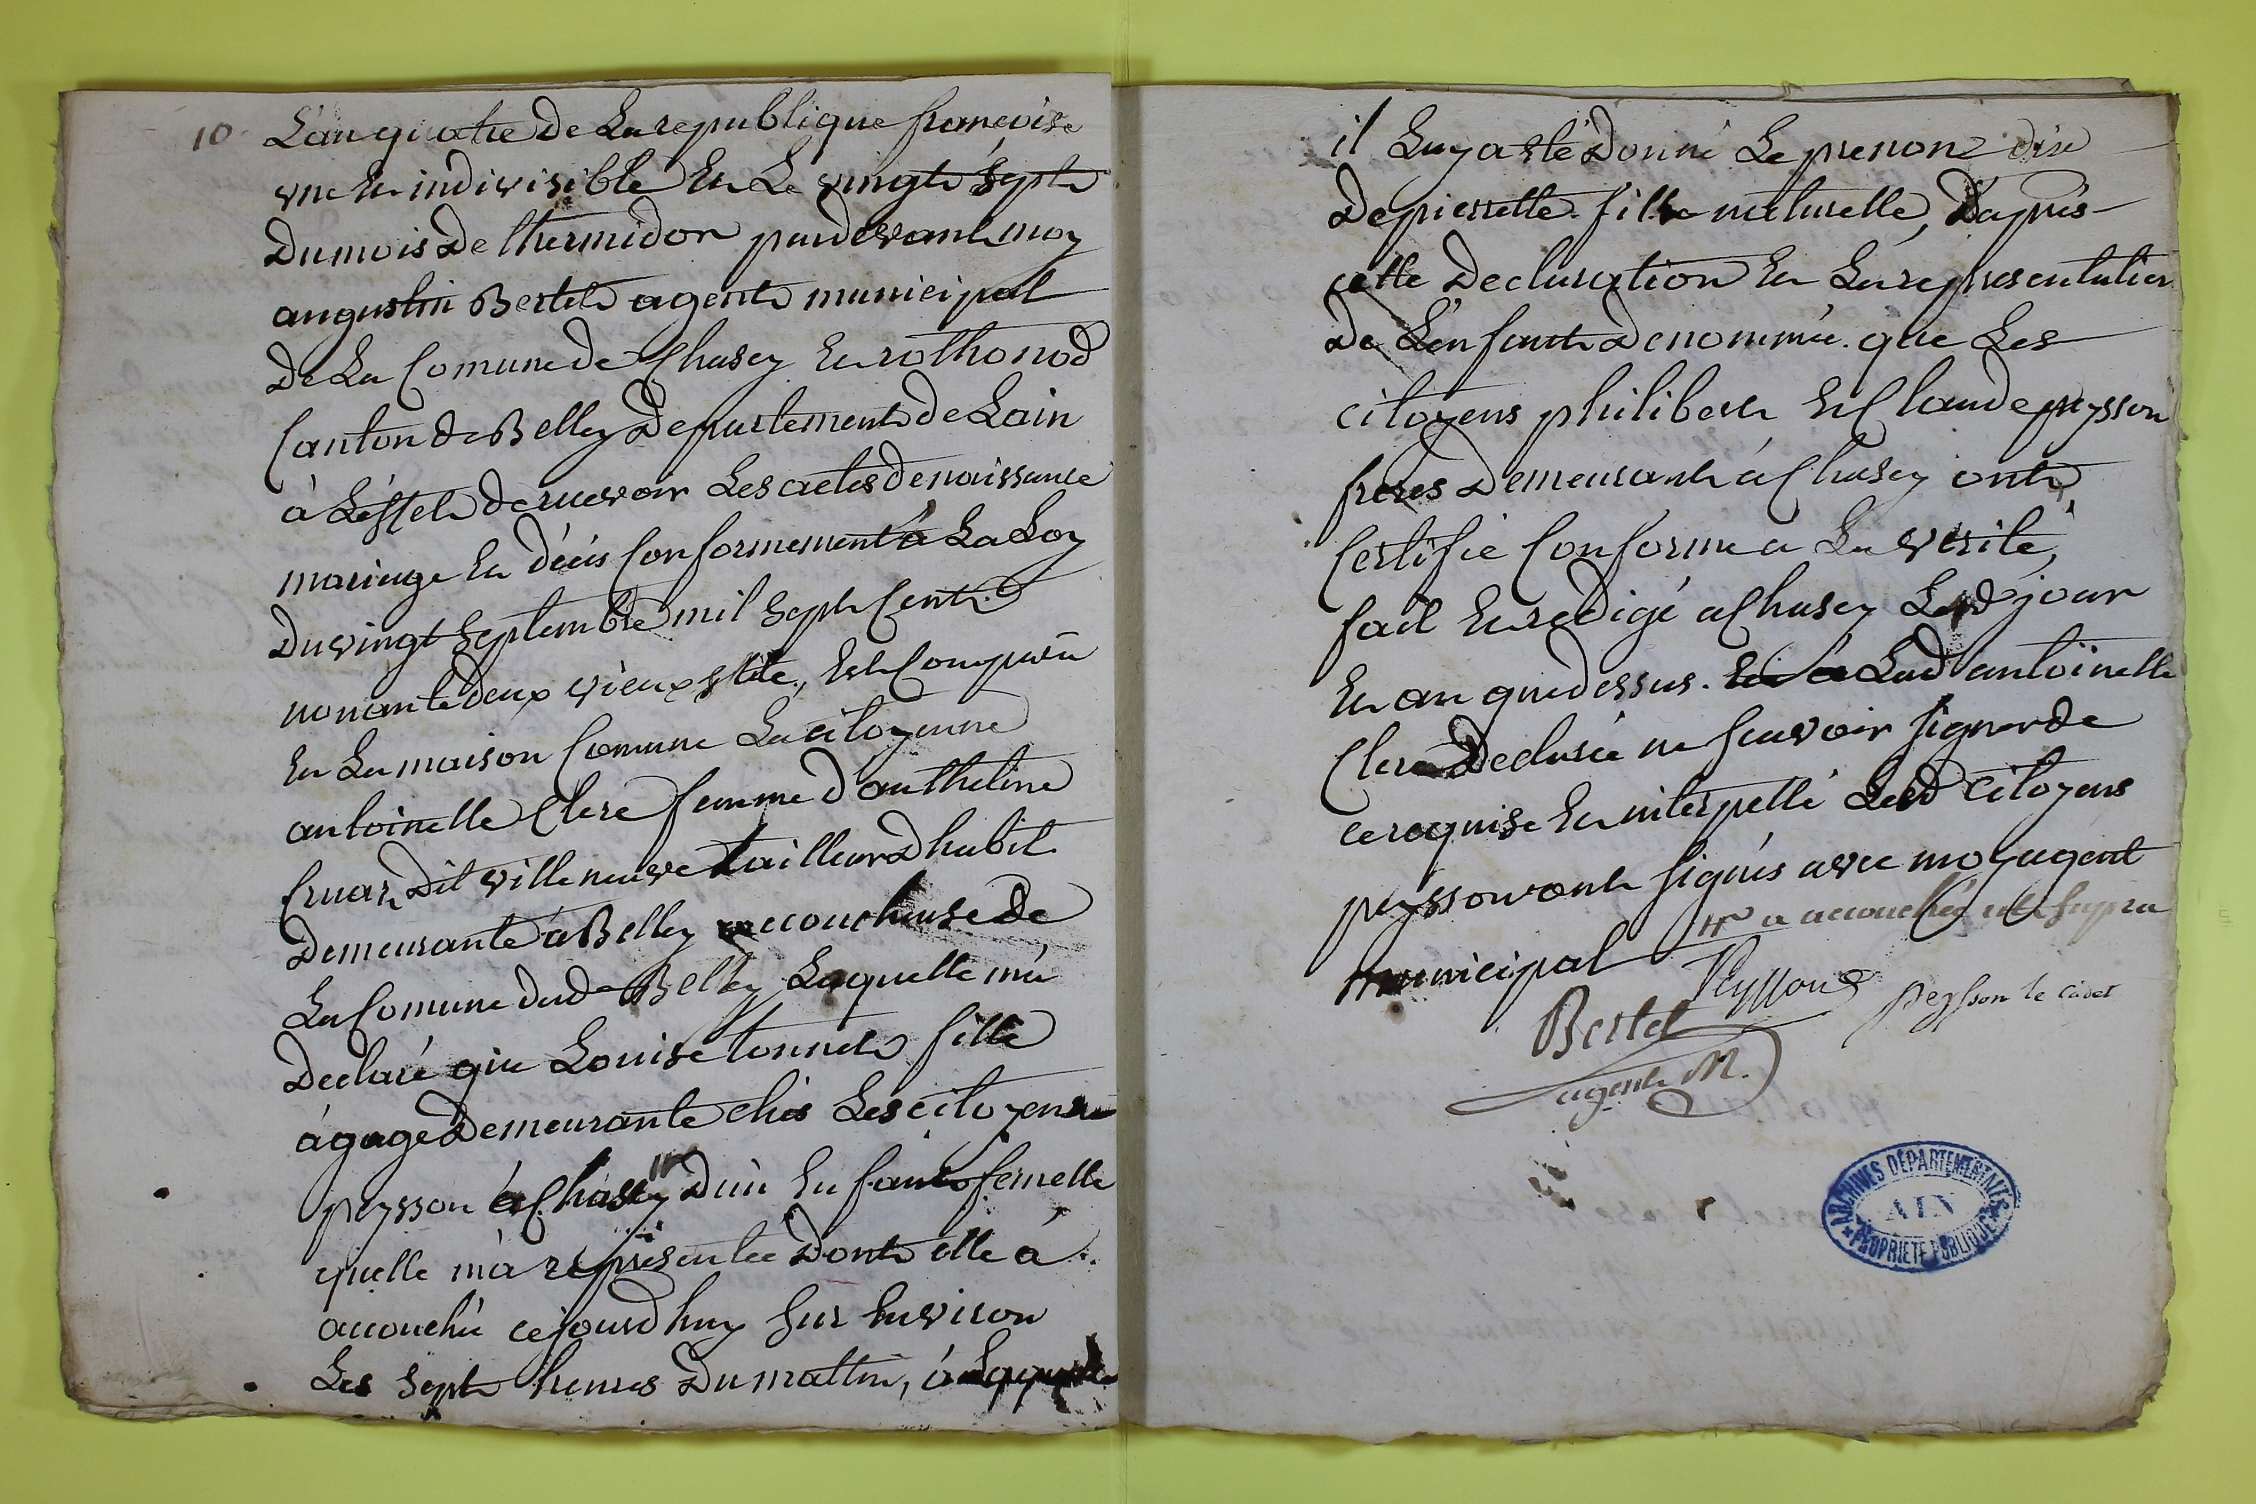 10 L'an quatre de La republique francoise
une et indivisible et Le vingt sept
du mois de thermidor pardevant moy
augustin Bertet agent municipal
de La Comune de Chasey et rothonod
Canton de Belley Departement de Lain
à Leffet de recevoir Les actes de naissance
mariage et décés Conformement à La Loy
du vingt septembre mil sept Cent
nonante deux vieux stile, est Comparüe
en La maison Comune La citoyenne
antoinette Clerc femme d'anthelme
Cruaz dit villeneuve tailleur d'habit
demeurante à Belley accoucheuse de
La Comune dud Belley Laquelle m'a
declaré que Louise tonnet fille
à gage demeurante chés Les citoyens
peysson à Chasey d'un enfant femelle
quelle m'a representée dont elle à
accouché cejourd huy sur environ
Les sept heures du mattin, à Laquelle
il Luy a esté donné Le prenom
de pierrette fille naturelle, D'aprés
cette declaration et La representation
de L'enfant denommée. que Les
citoyens philibert et Claude peysson
freres demeurants à Chasey ont
Certifié Conforme a La verité,
fait et redigé a Chasey Led jour
et an que dessus. Lad antoinette
Clerc declarée ne scavoir signer de
ce requise et interpellé Lesd Citoyens
peysson ont signés avec moy agent
municipal
a accouchée supra
Peysson
Peysson le cadet
Bertet
agent M.
ARCHIVES DÉPARTEMENTALES
AIN
PROPRIÉTÉ PUBLIQUE